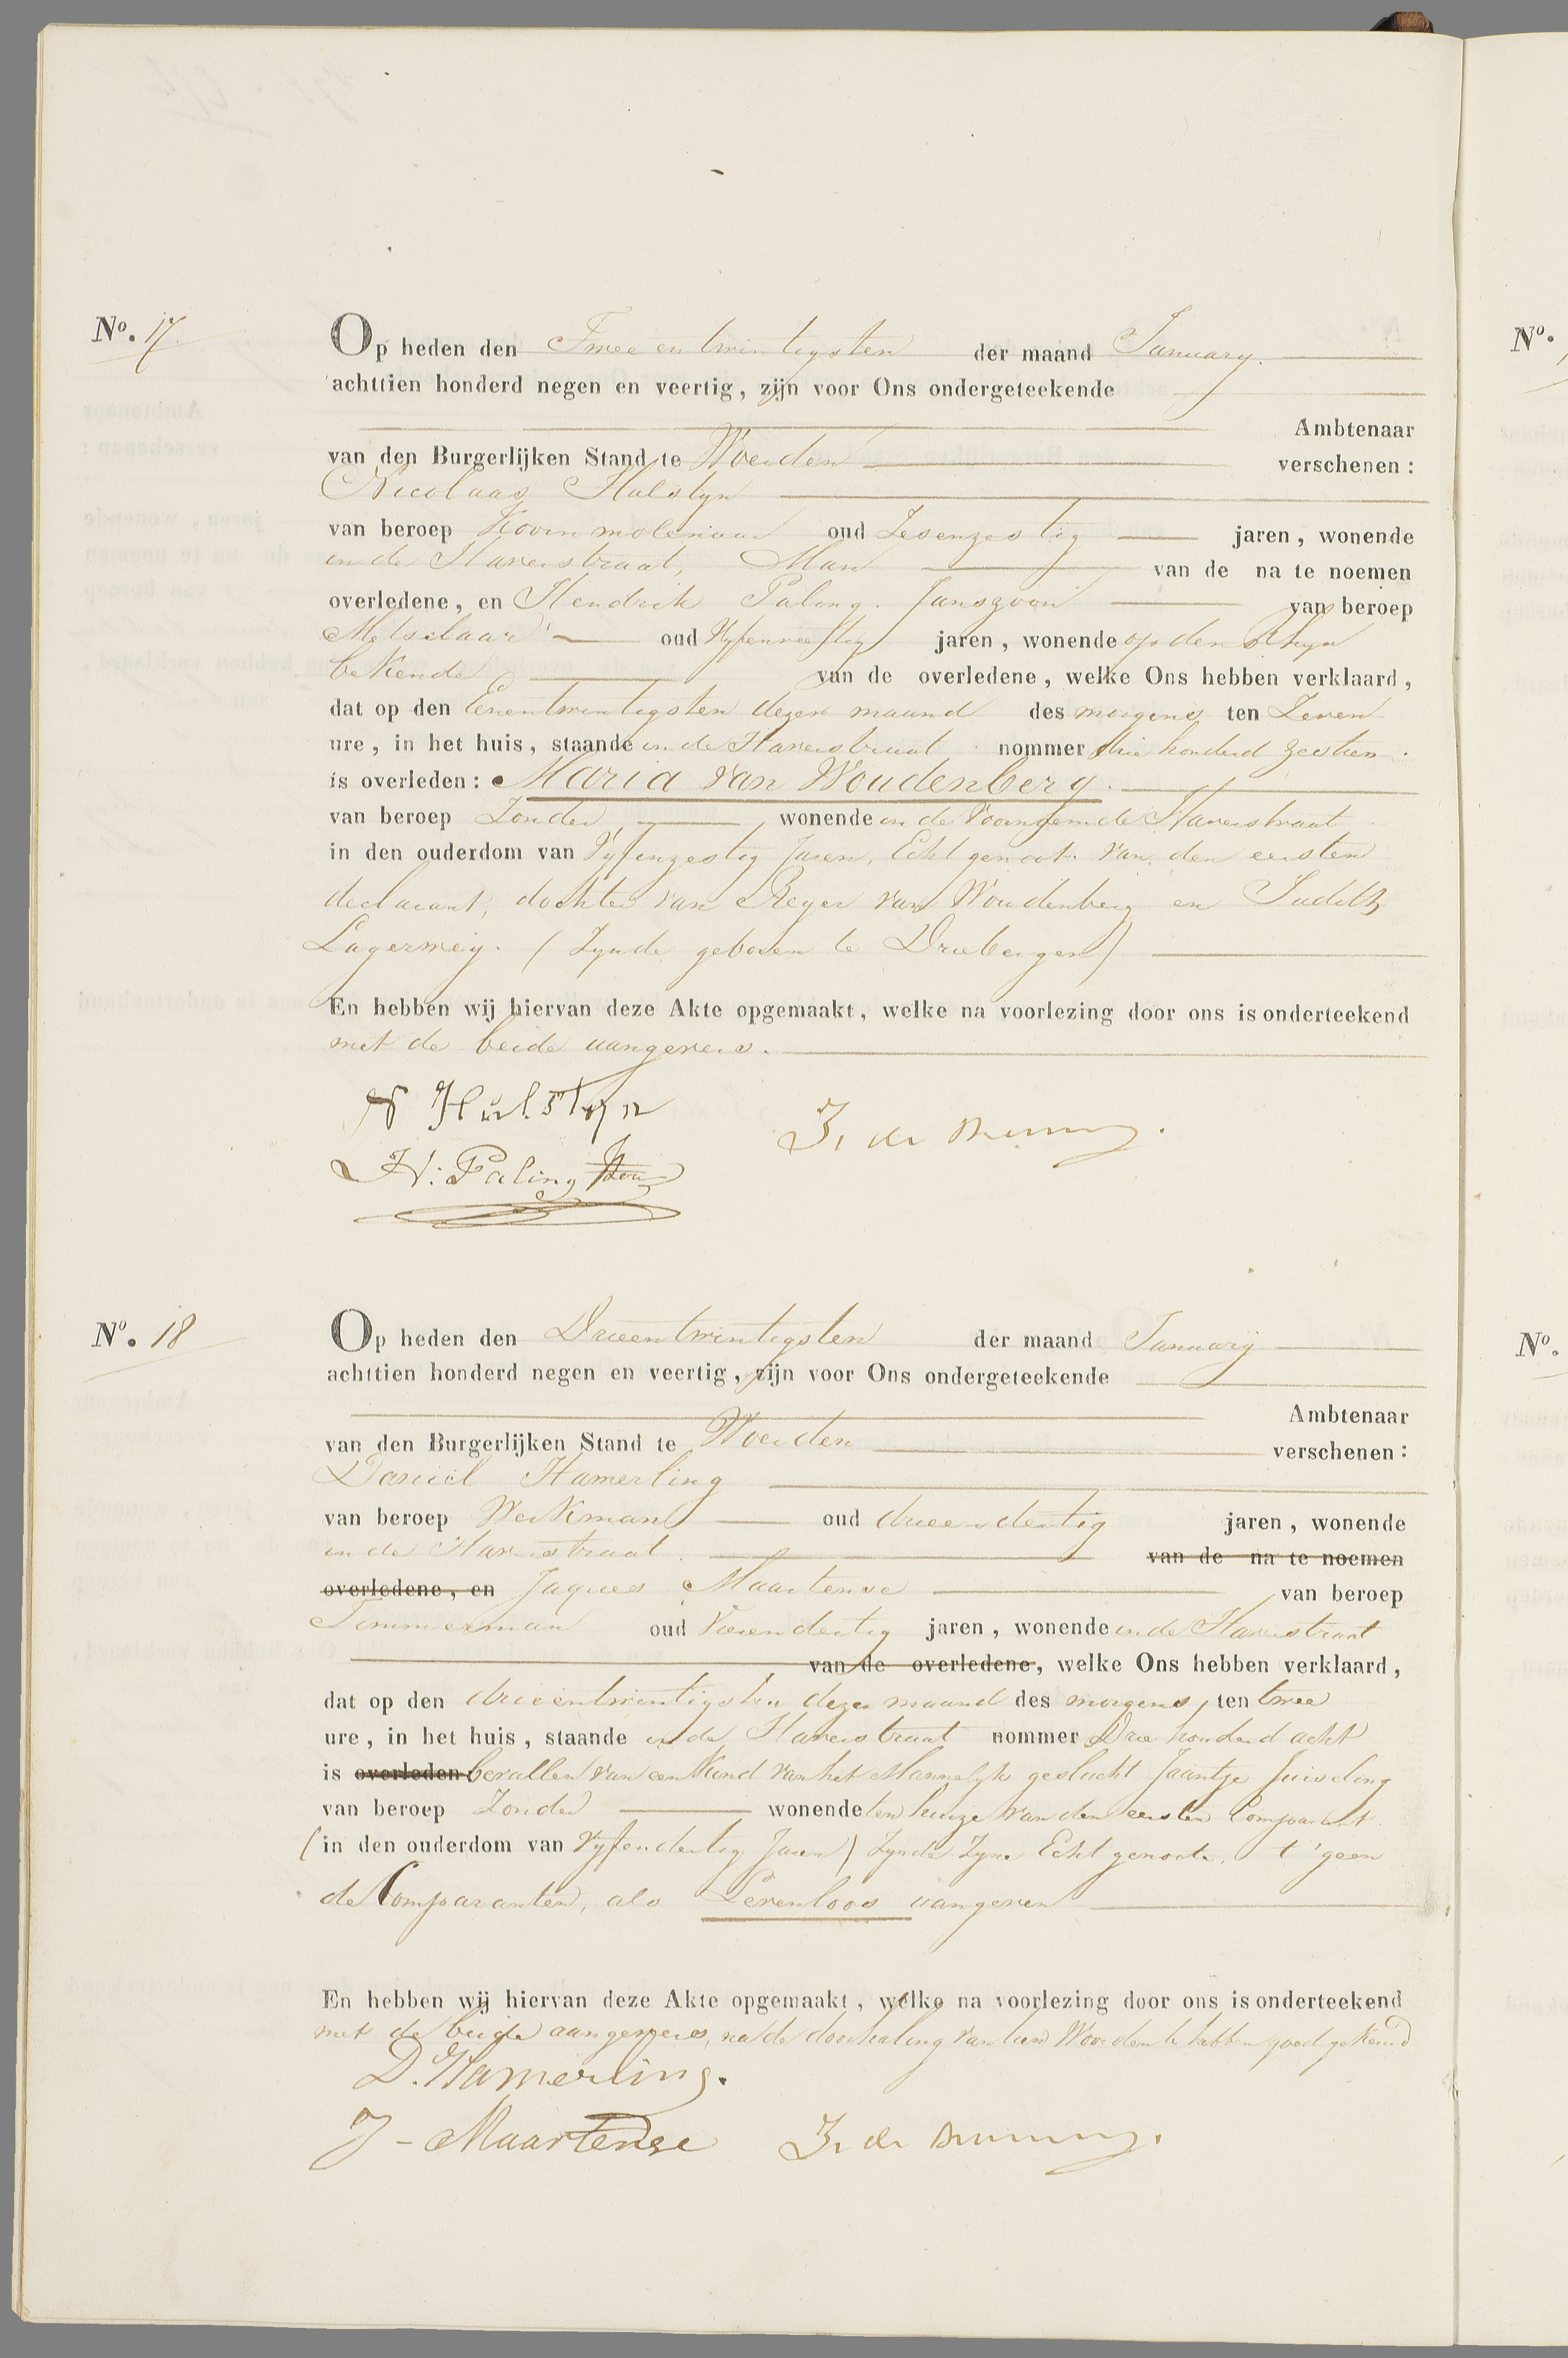 No. 17
Op heden den Twee en twintigsten der maand January.
achttien honderd negen en veertig, zijn voor Ons ondergeteekende
Ambtenaar
van den Burgerlijken Stand te Woerden verschenen:
Nicolaas Hulstyn
van beroep Koornmolenaar oud Zesenzestig jaren, wonende
in de Havenstraat, Man van de na te noemen
overledene, en Hendrik Paling Janszoon van beroep
Metselaar oud Vyfenveertig jaren, wonende op den Rhyn
bekende van de overledene, welke Ons hebben verklaard,
dat op den Eenentwintigsten dezer maand des morgens ten Zeven
ure, in het huis, staande in de Havenstraat nommer drie honderd zestien
is overleden: Maria van Woudenberg.
van beroep Zonder wonende in de Voornoemde Havenstraat
in den ouderdom van Vyfenzestig Jaren, Echtgenoot van den eersten
declarant, dochter van Reyer van Woudenberg en Judith
Lagerwey. (Zynde geboren te Driebergen)
En hebben wij hiervan deze Akte opgemaakt, welke na voorlezing door ons is onderteekend
met de beide aangevers.
N Hulstyn
H: Paling
No. 18
Op heden den Drieentwintigsten der maand January
achttien honderd negen en veertig, zijn voor Ons ondergeteekende
Ambtenaar
van den Burgerlijken Stand te Woerden verschenen:
Daniël Hamerling
van beroep Werkman oud drieendertig jaren, wonende
in de Havenstraat van de na te noemen
overledene, en Jaques Maartense van beroep
Timmerman oud Vierendertig jaren, wonende in de Havenstraat
van de overledene, welke Ons hebben verklaard,
dat op den drieentwintigsten dezer maand des morgens, ten twee
ure, in het huis, staande in de Havenstraat nommer Drie honderd acht
is overleden bevallen van een Kind van het Mannelyk geslacht Jaantje
van beroep Zonder wonende ten huize van den eersten Comparant
(in den ouderdom van Vyfendertig Jaren) Zynde Zyne Echtgenoote, t'geen
de Comparanten, als Levenloos aangeven
En hebben wij hiervan deze Akte opgemaakt, welke na voorlezing door ons is onderteekend
met de beide aangevers, na de doorhaling van tien Woorden te hebben goed gekeurd
D. Hamerling.
J - Maartense
No.
No.